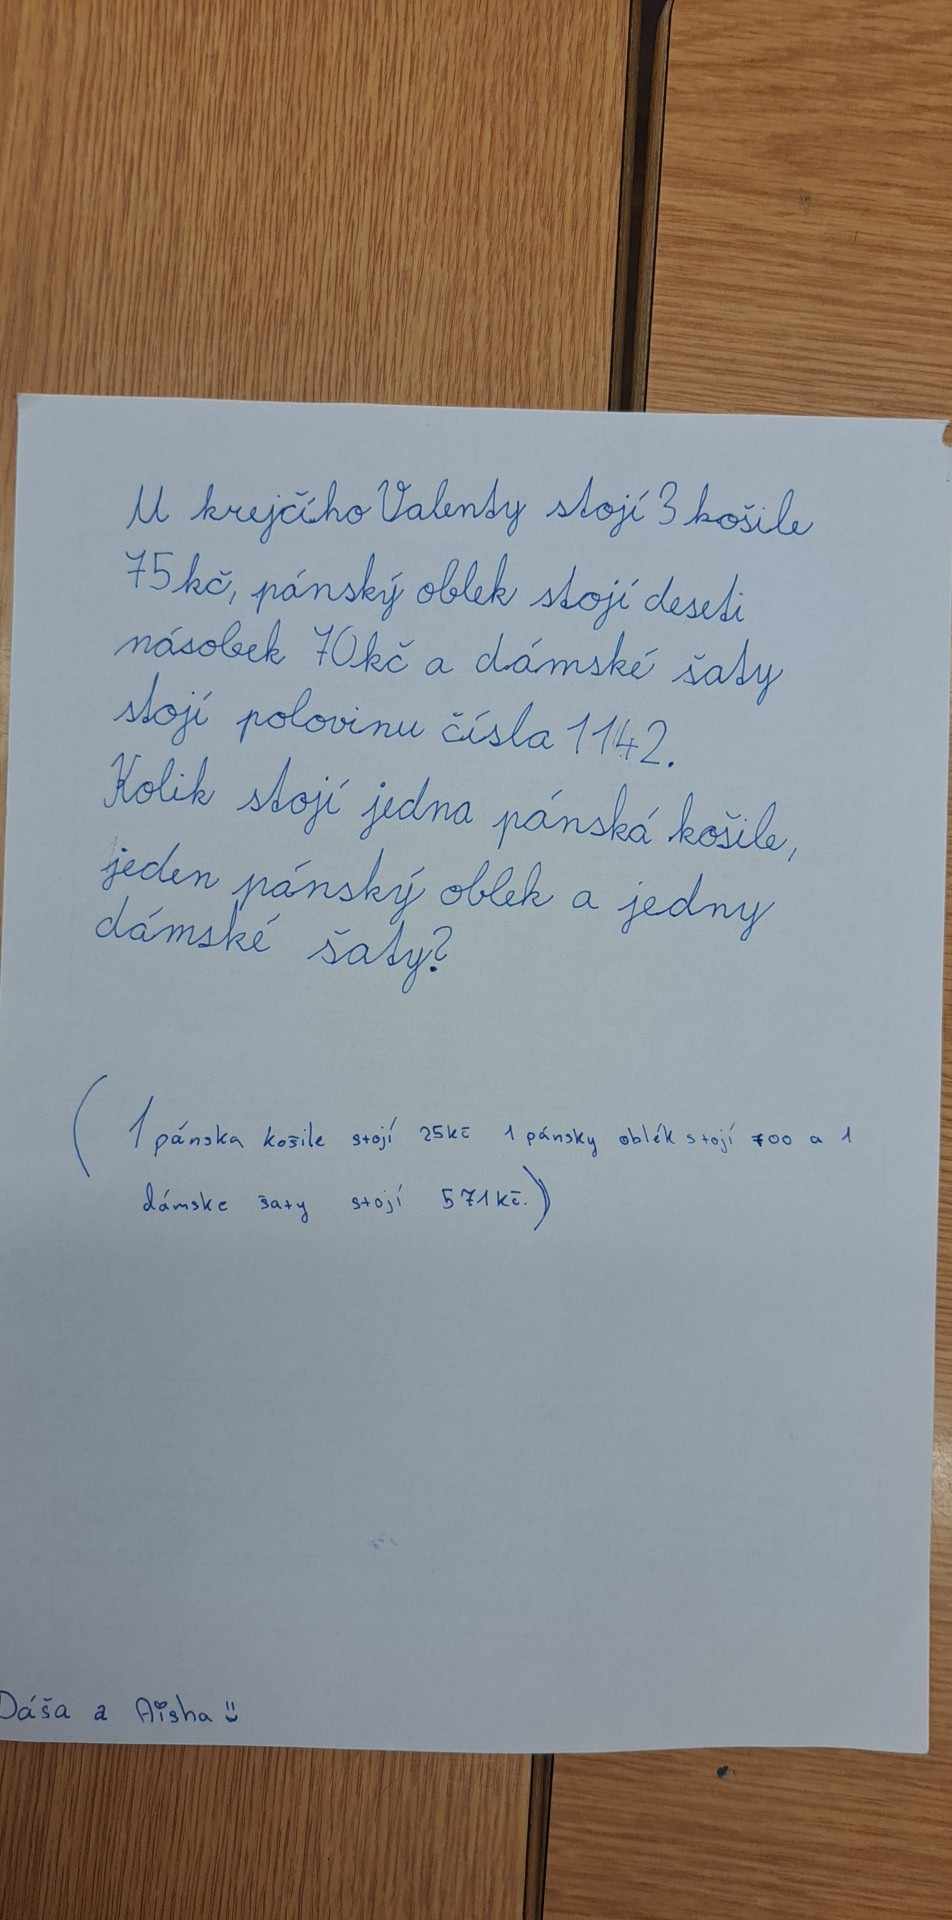 U krejčího Valenty stojí 3 košile
75kč, pánský oblek stojí deseti
násobek 70kč a dámské šaty
stojí polovinu čísla 1142.
Kolik stojí jedna pánská košile,
jeden pánský oblek a jedny
dámské šaty?
(1 pánska košile stojí 25kč 1 pánsky oblék stojí 700 a 1
dámske šaty stojí 571kč.)
Dáša a Aisha